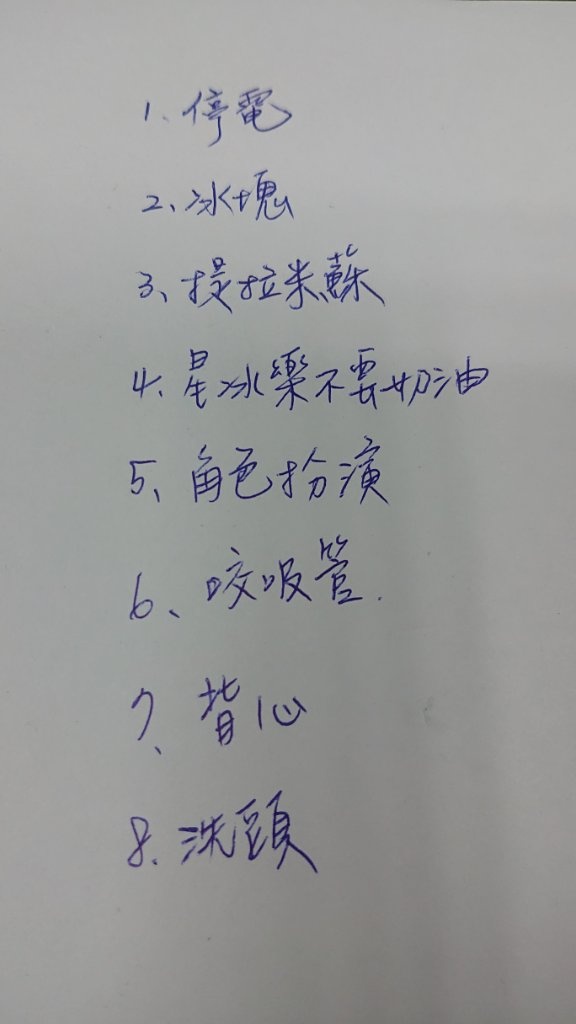 1、停電
2、冰塊
3、提拉米蘇
4、星冰樂不要奶油
5、角色扮演
6、咬吸管.
7、背心
8、洗頭